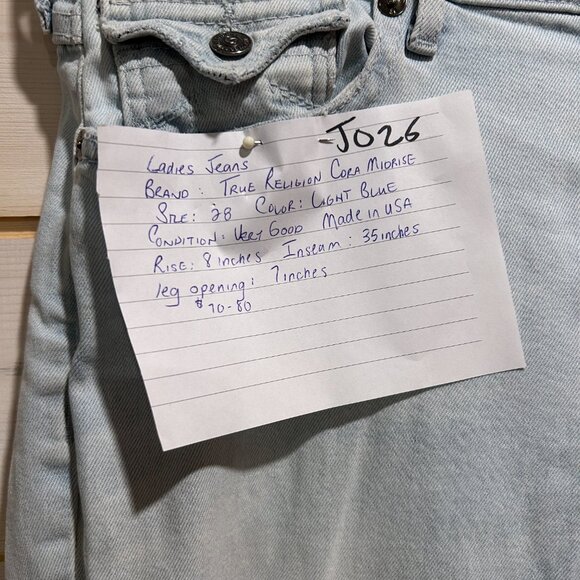 -JO26
Ladies Jeans
BRAND: TRUE RELIGION CORA MIDRISE
SIZE: 28 COLOR: LIGHT BLUE
CONDITION: VERY GOOD MADE IN USA
RISE: 8 inches INSEAM: 35 inches
leg opening: 7 inches
$70-80